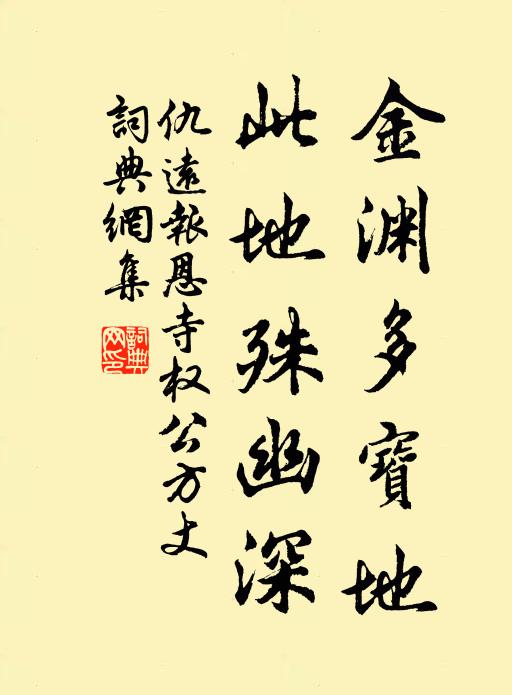 金渊多寶地
此地殊幽深
仇遠報恩寺权公方丈
詞典網集
詞典
网印